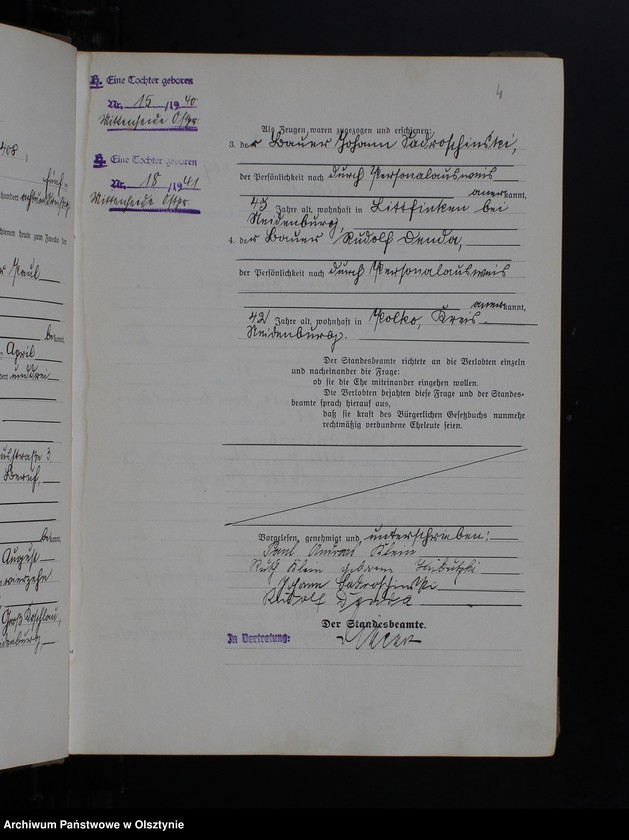 4
H. Eine Tochter geboren
Nr. 15 /1940
Mittenheide Ostpr.
H. Eine Tochter geboren
Nr. 18 /1941
Mittenheide Ostpr.
408,
fünf-
hundert
schienen heute zum Zwecke der
Paul
be kannt,
April
Beruf,
be kannt,
August
vierzehn
Groß Koschlau,
Als Zeugen waren zugezogen und erschienen:
3. der Bauer Johann Sadroschinski,
der Persönlichkeit nach durch Personalausweis
anerkannt,
43 Jahre alt, wohnhaft in Littfinken bei
Neidenburg,
4. der Bauer Rudolf Denda,
der Persönlichkeit nach durch Personalausweis
anerkannt,
42 Jahre alt, wohnhaft in Polko, Kreis
Neidenburg.
Der Standesbeamte richtete an die Verlobten einzeln
und nacheinander die Frage:
ob sie die Ehe miteinander eingehen wollen.
Die Verlobten bejahten diese Frage und der Standes-
beamte sprach hierauf aus,
daß sie kraft des Bürgerlichen Gesetzbuchs nunmehr
rechtmäßig verbundene Eheleute seien.
Vorgelesen, genehmigt und unterschrieben:
Paul Klein
Ruth Klein geborene
Johann Sadroschinski
Rudolf Denda
Der Standesbeamte.
In Vertretung:
Archiwum Państwowe w Olsztynie